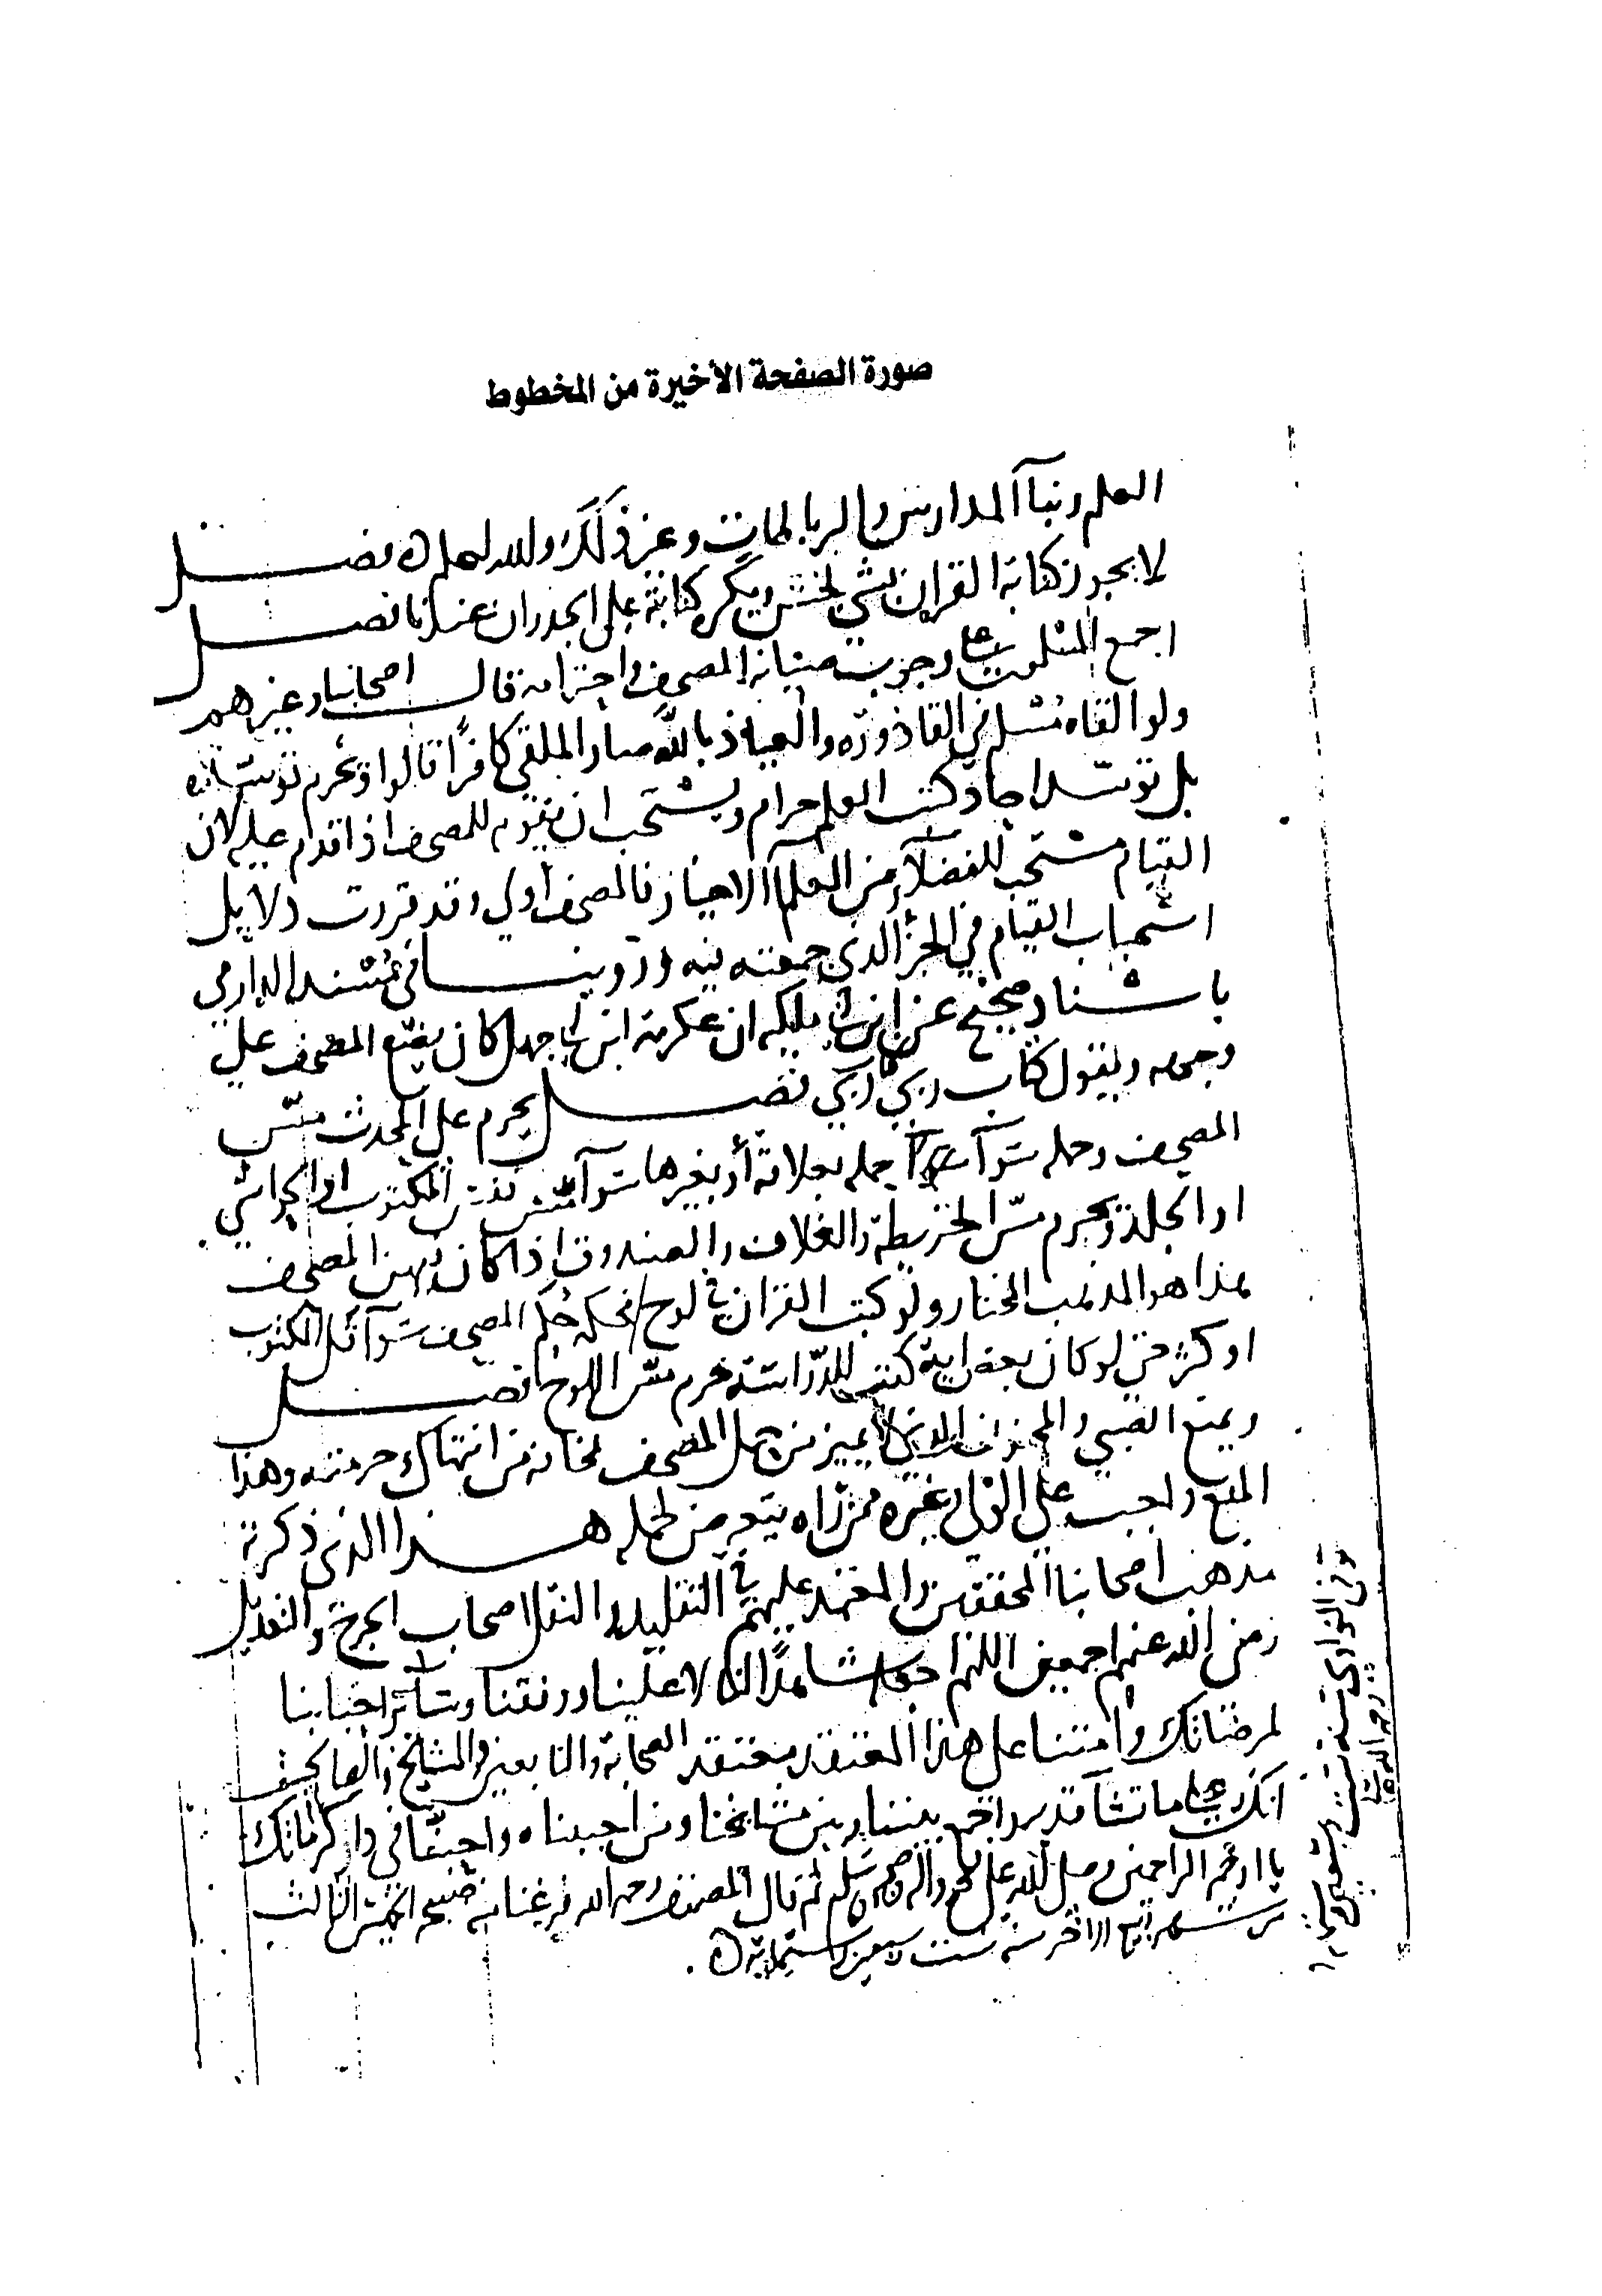 صورة الصفحة الأخيرة من المخطوط
العلم وبنآ المدارس والرباطات وغير ذلك والله اعلم فصل
لا يجوز كتابة القران بشي نجس ويكره كتابته على الجدران عندنا فصل
اجمع المسلمون على وجوب صيانة المصحف واحترامه قال اصحابنا وغيرهم
ولو القاه مسلم في القاذورة والعياذ بالله صار الملقي كافرًا قالوا ويحرم توسده
بل توسد احاد كتب العلم حرام ويستحب ان يقوم للمصحف اذا قدم عليه لان
القيام مستحب للفضلآ من العلمآ الاخيار فالمصحف أولى وقد قررت دلايل
استحباب القيام في الجزء الذي جمعته فيه وروينا في مسند الدارمي
باسناد صحيح عن ابن ابي مليكه ان عكرمة ابن ابي جهل كان يضع المصحف على
وجهه ويقول كتاب ربي كتاب ربي فصل يحرم على المحدث مس
المصحف وحمله سوآ حمله بعلاقة أو بغيرها سوآ مس نفس المكتوب او الحواشي
او الجلد ويحرم مس الخريطة والغلاف والصندوق اذا كان فيهن المصحف
هذا هو المذهب المختار ولو كتب القران في لوح فحكمه حكم المصحف سوآ قل المكتوب
او كثر حتى لو كان بعض اية كتب للدراسة حرم مس اللوح فصل
ويمنع الصبي والمجنون الذي لا يميز من حمل المصحف مخافة من انتهاك حرمته وهذا
المنع واجب على الولي وغيره ممن راه يتعرض لحمله هذا الذي ذكرته
مذهب اصحابنا المحققين والمعتمد عليهم في النقل اصحاب الجرح والتعديل
رضي الله عنهم اجمعين اللهم علينا ورفقتنا وسائر احبابنا
لمرضاتك وامتنا على هذا المعتقد معتقد الصحابة والتابعين والمشايخ والصالحين
انك على ما تشآ قدير واجمع بيننا وبين مشايخنا ومن احببناه واحبنا في دار كرامتك
يا ارحم الراحمين وصل الله على محمد واله وصحبه وسلم قال المصنف رحمه الله فرغت منه صبيحة الخميس الثالث
من شهر ربيع الاخر سنة ست وستين وستماية
توفي النواوي سنة ست وسبعين
رحمه الله